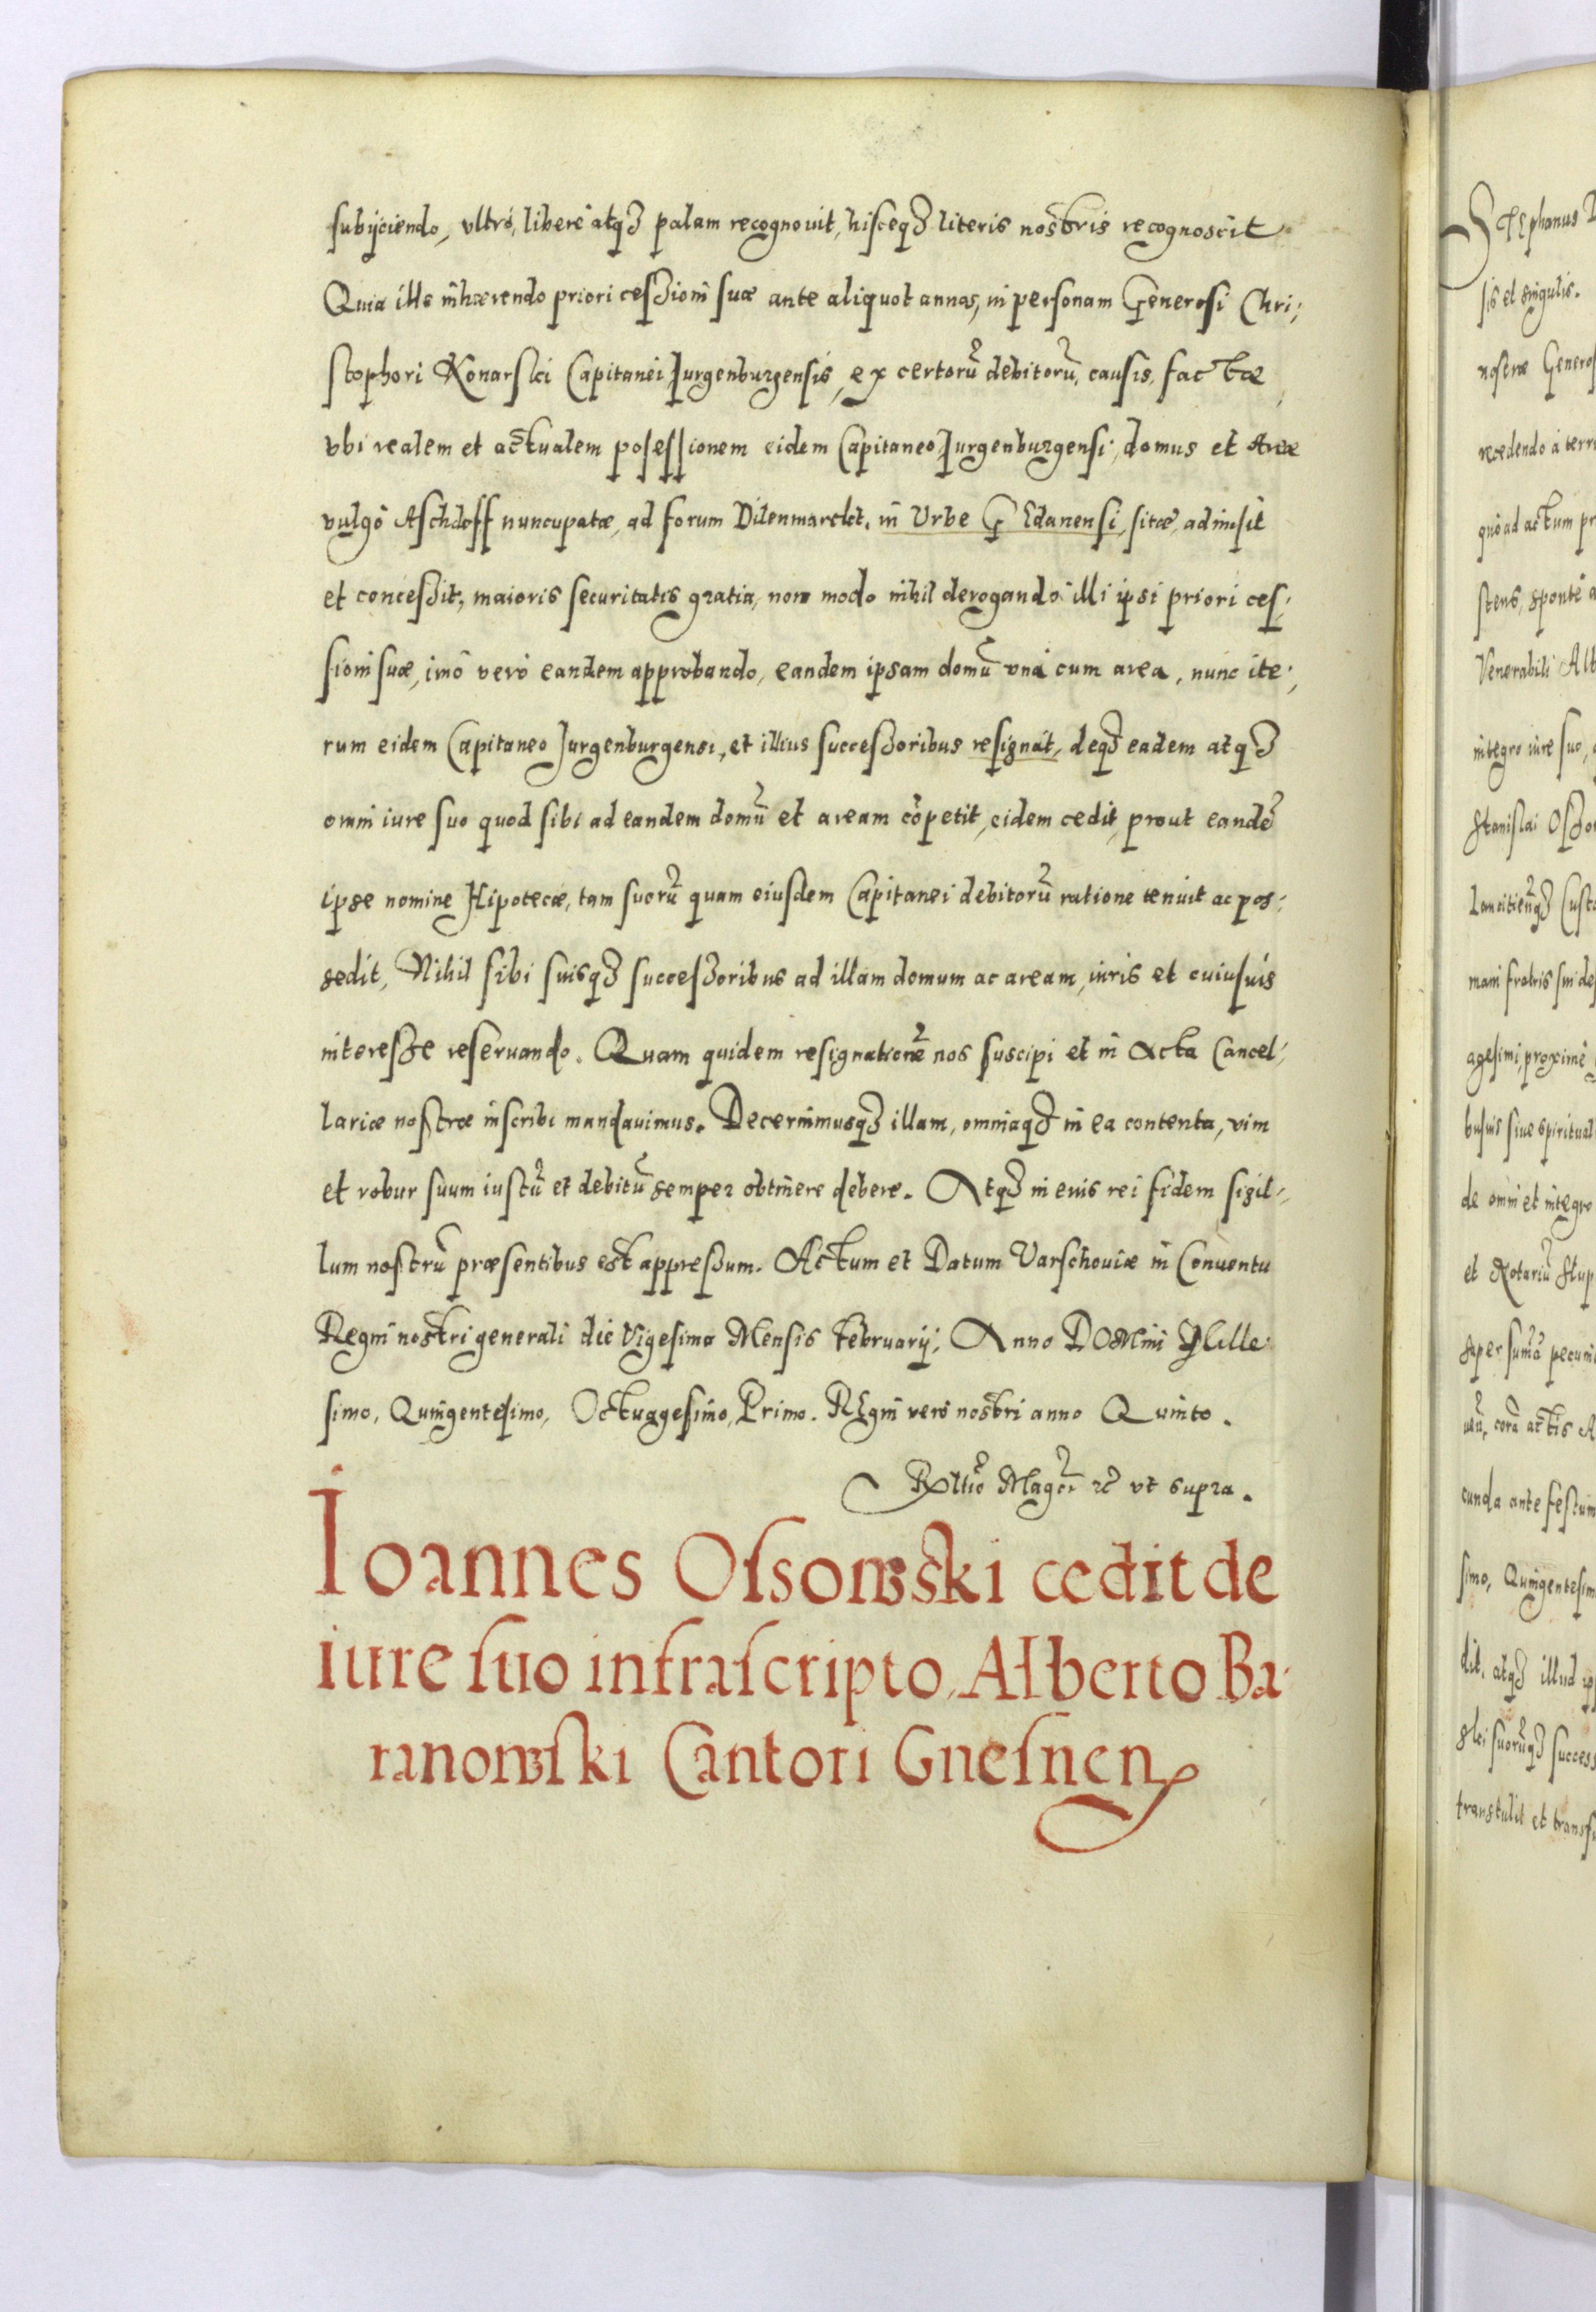 subijciendo, vltró, liberè atq3 palam recognouit, hisceq3 literis nostris recognoscit
Quia ille inhærendo priori cessioni suæ ante aliquot annos, in personam Generosi Chri,
stophori Konarski Capitanei Jurgenburgensis, ex certorū debitorū, causis, factæ,
vbi realem et actualem posessionem eidem Capitaneo Jurgenburgensi, domus et Areæ
vulgò Aschdoff nuncupatæ, ad forum Dilenmarckt, in Urbe GEdanensi, sitæ, admisit
et concessit, maioris securitatis gratia, non modo nihil derogando illi ipsi priori ces,
sioni suæ, imò verò eandem approbando, eandem ipsam domū vnà cum area, nunc ite,
rum eidem Capitaneo Jurgenburgensi, et illius successoribus resignat, deq3 eadem atq3
omni iure suo quod sibi ad eandem domū et aream cōpetit, eidem cedit, prout eandē
ipse nomine Hipotecæ, tam suorū quam eiusdem Capitanei debitorū ratione tenuit ac pos,
sedit, Nihil sibi suisq3 successoribus ad illam domum ac aream, iuris et cuiusuis
interesse reseruando. Quam quidem resignationē nos suscipi et in Acta Cancel,
lariæ nostræ inscribi mandauimus. Decernimusq3 illam, omniaq3 in ea contenta, vim
et robur suum iustū et debitū semper obtinere debere. Atq3 in cuius rei fidem sigil,
lum nostrū præsentibus est appressum. Actum et Datum Varschouiæ in Conuentu
Regni nostri generali die Vigesima Mensis februarij, Anno DOMini Mille
simo, Quingentesimo, Octuagesimo, Primo. REgni verò nostri anno Quinto.
Rltio Magci rc vt supra.
Ioannes Ossowski cedit de
iure suo infrascripto, Alberto Ba,
ranowski Cantori Gnesnen
STEphanus
sis et singulis.
nostræ Generos
recedendo à terr
quò ad actum pr
stens, spontè a
Venerabili Alb
integro iure suo,
Stanislai Osso
Lancitien̄q3 Cust
mani fratris sui de
agesimi, proximè
busuis siue spiritual
de omni et integro
et Notariū Stup
super sumā pecuni
corā actis A
cunda ante festum
simo, Quingentesim
dit, atq3 illud ip
ski suorūq3 success
transtulit et transf